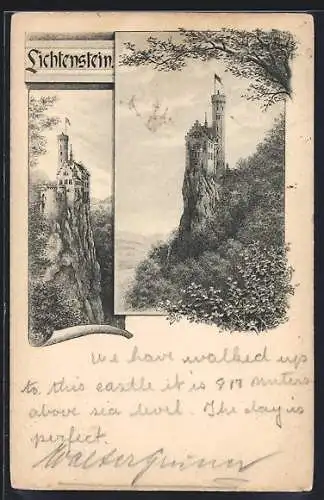 Lichtenstein.
We have walked up
to this castle it is 817 meters
above sia level. The day is
perfect.
Walter